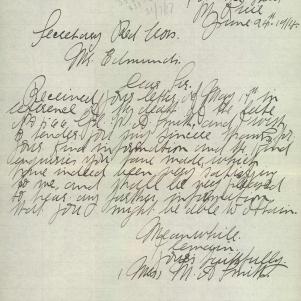 June 24th 1918
Secretary Red Cross
Mr Edmunds.
Dear Sir.
Received your letter of May 1st in
reference to my the late
No 1566 Cpl Smith and wish
to tender you my sincere thanks for
your kind information and the kind
enquiries you have made, which
have indeed been very satisfying
to me, and shall be very pleased
to hear any further information
that you might be able to obtain.
Meanwhile.
I remain.
Yours faithfully.
(Mrs) M. A Smith